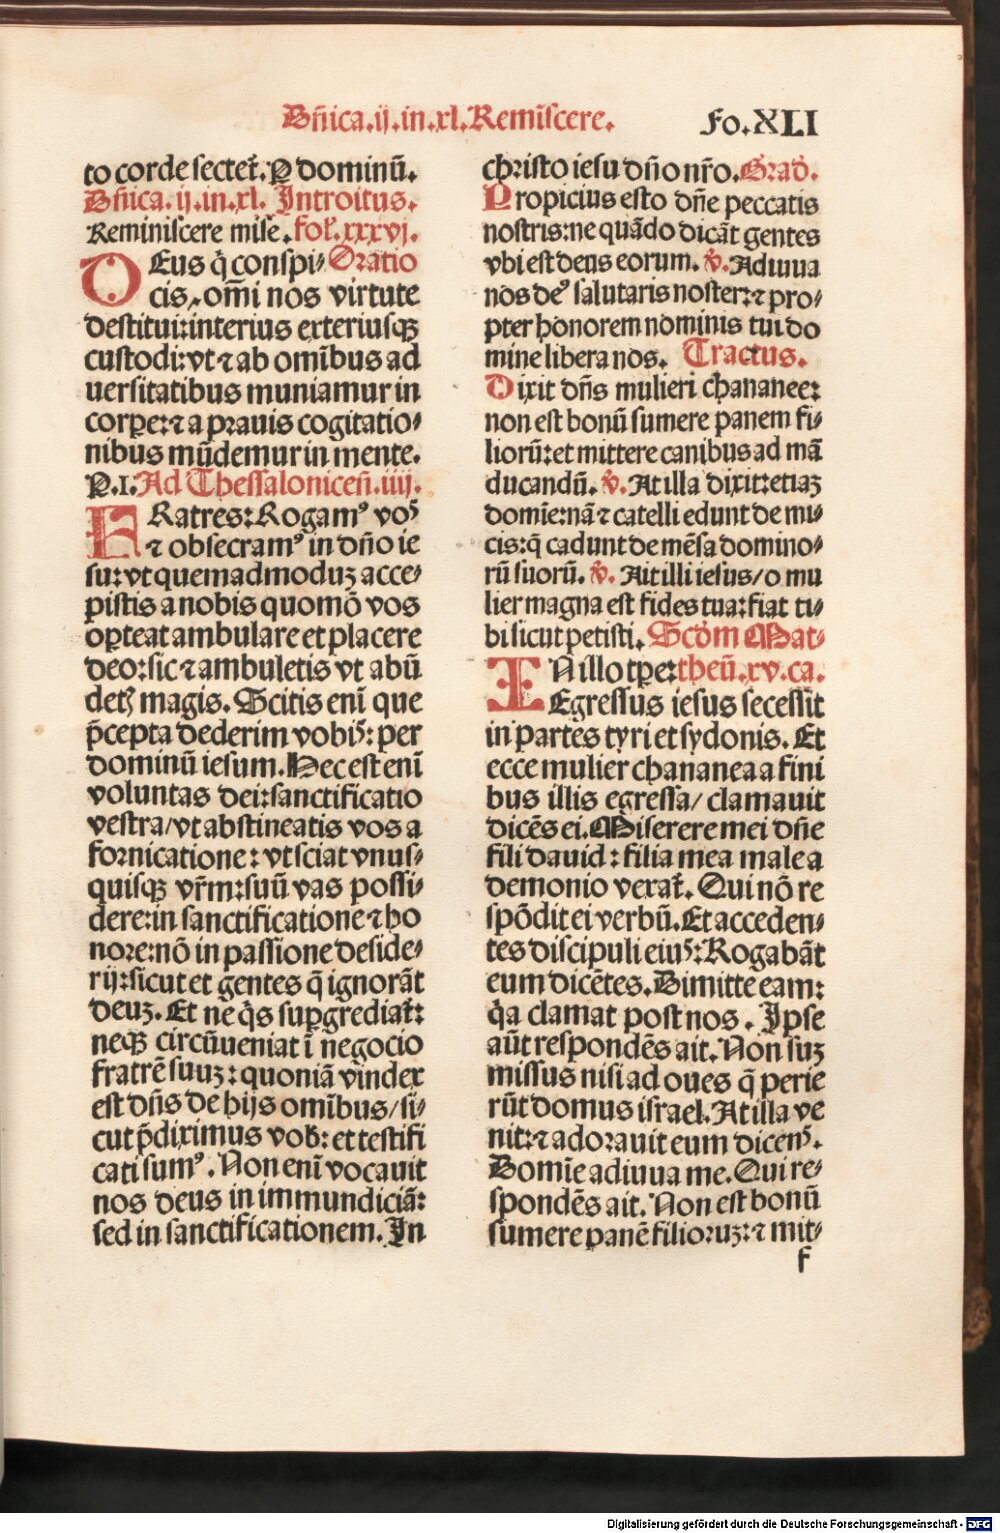 Dñica.ij.in.xl.Remiscere.
Fo.XLI
to corde sectet᷑. P dominū.
Dñica. ij. in. xl. Introitus.
Reminiscere mise. fol. xxxvj.
DEus q̇ conspi⸗ Oratio
cis, om̄i nos virtute
destitui:interius exteriusqꝫ
custodi:vt ⁊ ab omībus ad
uersitatibus muniamur in
corpe:⁊ a prauis cogitatio⸗
nibus mūdemur in mente.
P.I.Ad Thessaloniceñ.iiij.
FRatres:Rogamꝰ voˢ
⁊ obsecramꝰ in dño ie
su:vt quemadmoduꝫ acce⸗
pistis a nobis quomō vos
oꝑteat ambulare et placere
deo:sic ⁊ ambuletis vt abū
detꝭ magis. Scitis enī que
p̄cepta dederim vobiˢ: per
dominū iesum. Hec est enī
voluntas dei:sanctificatio
vestra/vt abstineatis vos a
fornicatione: vt sciat vnus⸗
quisqꝫ vr̄m:suū vas possi⸗
dere:in sanctificatione ⁊ ho
nore:nō in passione deside⸗
rij:sicut et gentes q̄ ignorāt
deuꝫ. Et ne q̇s suꝑgrediat᷑:
neqꝫ circūueniat ī negocio
fratrē suuꝫ: quoniā vindex
est dñs de hijs omībus/si⸗
cut p̄diximus vob: et testifi
cati sumꝰ. Non enī vocauit
nos deus in immundiciā:
sed in sanctificationem. In
christo iesu dño nr̄o. Grad.
Propicius esto dñe peccatis
nostris:ne quādo dicāt gentes
vbi est deus eorum. ꝟ. Adiuua
nos deꝰ salutaris noster:⁊ pro⸗
pter honorem nominis tui do
mine libera nos. Tractus.
Dixit dñs mulieri chananee:
non est bonū sumere panem fi⸗
liorū:et mittere canibus ad mā
ducandū. ꝟ. At illa dixit:etiaꝫ
domie:nā ⁊ catelli edunt de mi⸗
cis:q̄ cadunt de mēsa domino⸗
rū suorū. ꝟ. Ait illi iesus/o mu
lier magna est fides tua:fiat ti⸗
bi sicut petisti. Scdm Mat⸗
IN illo tpe: theū.xv.ca.
Egressus iesus secessit
in partes tyri et sydonis. Et
ecce mulier chananea a fini
bus illis egressa/ clamauit
dicēs ei. Miserere mei dñe
fili dauid: filia mea male a
demonio vexat᷑. Qui nō re
spōdit ei verbū. Et acceden⸗
tes discipuli eiuˢ: Rogabāt
eum dicētes. Dimitte eam:
q̇a clamat post nos. Ipse
aūt respondēs ait. Non suꝫ
missus nisi ad oues q̄ perie
rūt domus israel. At illa ve
nit:⁊ adorauit eum dicenˢ.
Domīe adiuua me. Qui re⸗
spondēs ait. Non est bonū
sumere panē filioruꝫ:⁊ mit⸗
f
Digitalisierung gefördert durch die Deutsche Forschungsgemeinschaft - DFG